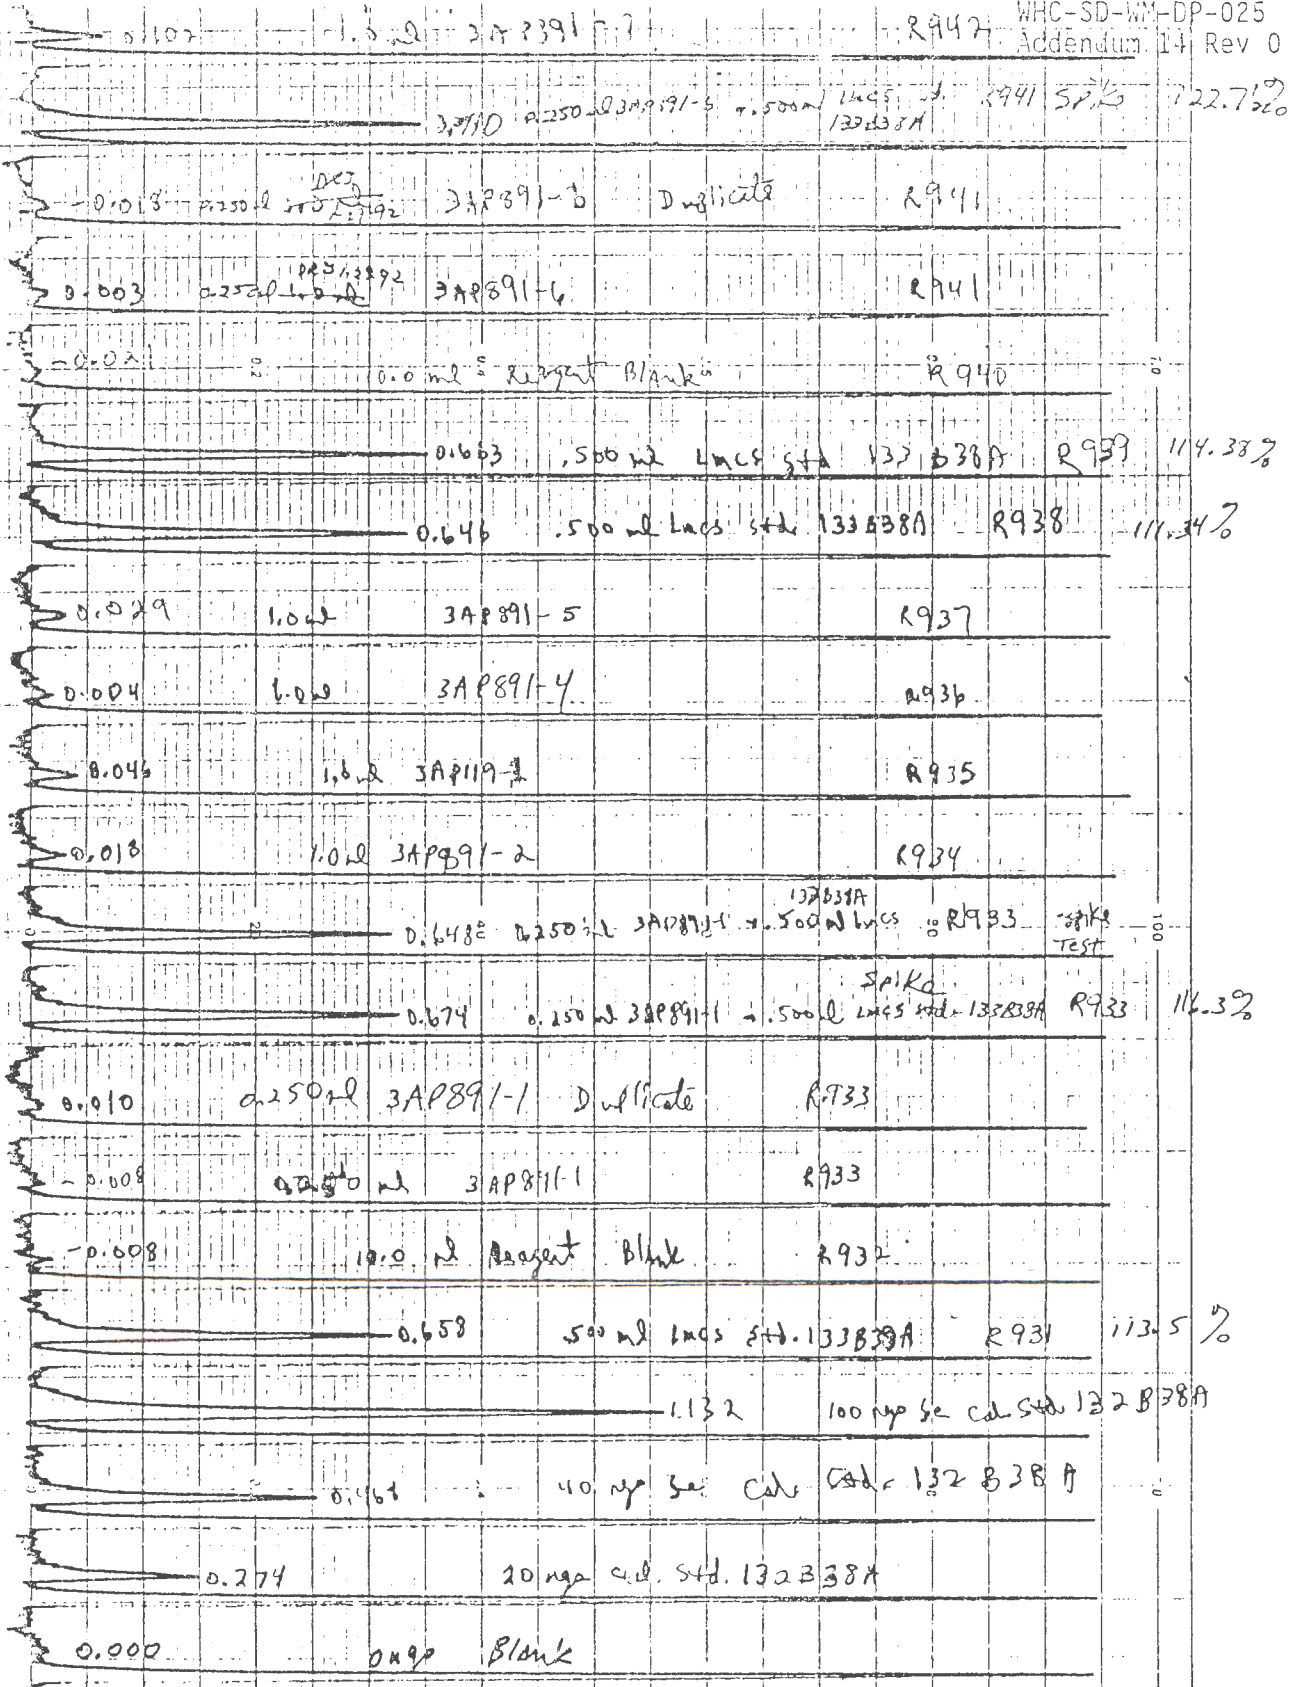 WHC-SD-WM-DP-025
Addendum 14 Rev 0
R942
0.250 ml 3AP891-6 + .500 ml LMCS std. R941 Spike 122.7%
133B38A
-0.018 0.250 ml 3AP891-6 Duplicate R941
0.003 0.250 ml 1.0 ml 3AP891-6 R941
-0.021 10.0 ml Reagent Blank R940
0.663 .500 ml LMCS std 133B38A R939 114.38%
0.646 .500 ml LMCS std. 133B38A R938 111.34%
0.029 1.0 ml 3AP891-5 R937
0.004 1.0 ml 3AP891-4 R936
0.046 1.0 ml R935
0.018 1.0 ml 3AP891-2 R934
133B38A
0.648 0.250 ml 3AP891-1 + .500 ml LMCS R933 spike
Test
Spike
0.674 0.250 ml 3AP891-1 + .500 ml LMCS std. 133B38A R933 116.3%
0.010 0.250 ml 3AP891-1 Duplicate R933
-0.008 ml 3AP891-1 R933
-0.008 10.0 ml Reagent Blank R932
0.658 .500 ml LMCS Std. 133B38A R931 113.5%
1.132 100 ngs Se Cal. Std. 132B38A
0.468 40 ngs Se Cal. Std. 132B38A
0.274 20 ngs Cal. Std. 132B38A
0.000 0 ngs Blank